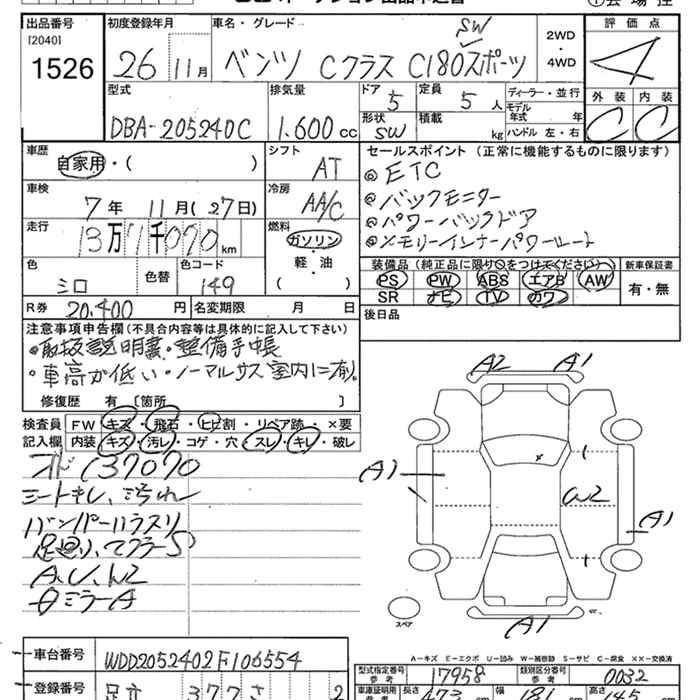 出品番号 初度登録年月 車名・グレード 評価点
[2040]
1526 26 11月 ベンツ Cクラス C180スポーツ SW 2WD・4WD 4
型式 排気量 ドア 5 定員 5人 ディーラー・並行 外装 内装
DBA-205240C 1.600cc 形状 SW 積載 kg モデル年式 年 C C
ハンドル 左・右
車歴 シフト セールスポイント (正常に機能するものに限ります)
自家用・( ) AT ◎ETC
車検 冷房 ◎バックモニター
7年 11月(27日) AA/C ◎パワーバックドア
走行 燃料 ◎メモリーインナーパワーシート
13万7千070km ガソリン・軽・油 ( )
色 色替 色コード 装備品 (純正品に限り○をつけてください) 新車保証書
シロ 149 PS PW ABS エアB AW 有・無
SR ナビ TV カワ
R券 20.400円 名変期限 月 日 後日品
注意事項申告欄(不具合内容等は具体的に記入して下さい)
・取扱説明書・整備手帳
・車高が低い・ノーマルサス室内に有り
修復歴 有 〔箇所 〕
検査員記入欄 FW キズ・飛石・ヒビ割・リペア跡・×要
内装 キズ・汚れ・コゲ・穴・スレ・キレ・破レ
A2 A1
オド137070
シートキレ、汚れ
A1 W2
バンパーハラスリ
A1
足廻り、マフラーS
A.U.W2
ミラーA
スペア A1
A−キズ E−エクボ U−凹み W−補修跡 S−サビ C−腐食 ××−交換済
車台番号 WDD2052402F106554 型式指定番号 参考 17958 類別区分番号 参考 0032
登録番号 足立 377さ 2 車庫証明用 長さ 473cm 幅 181cm 高さ 145cm